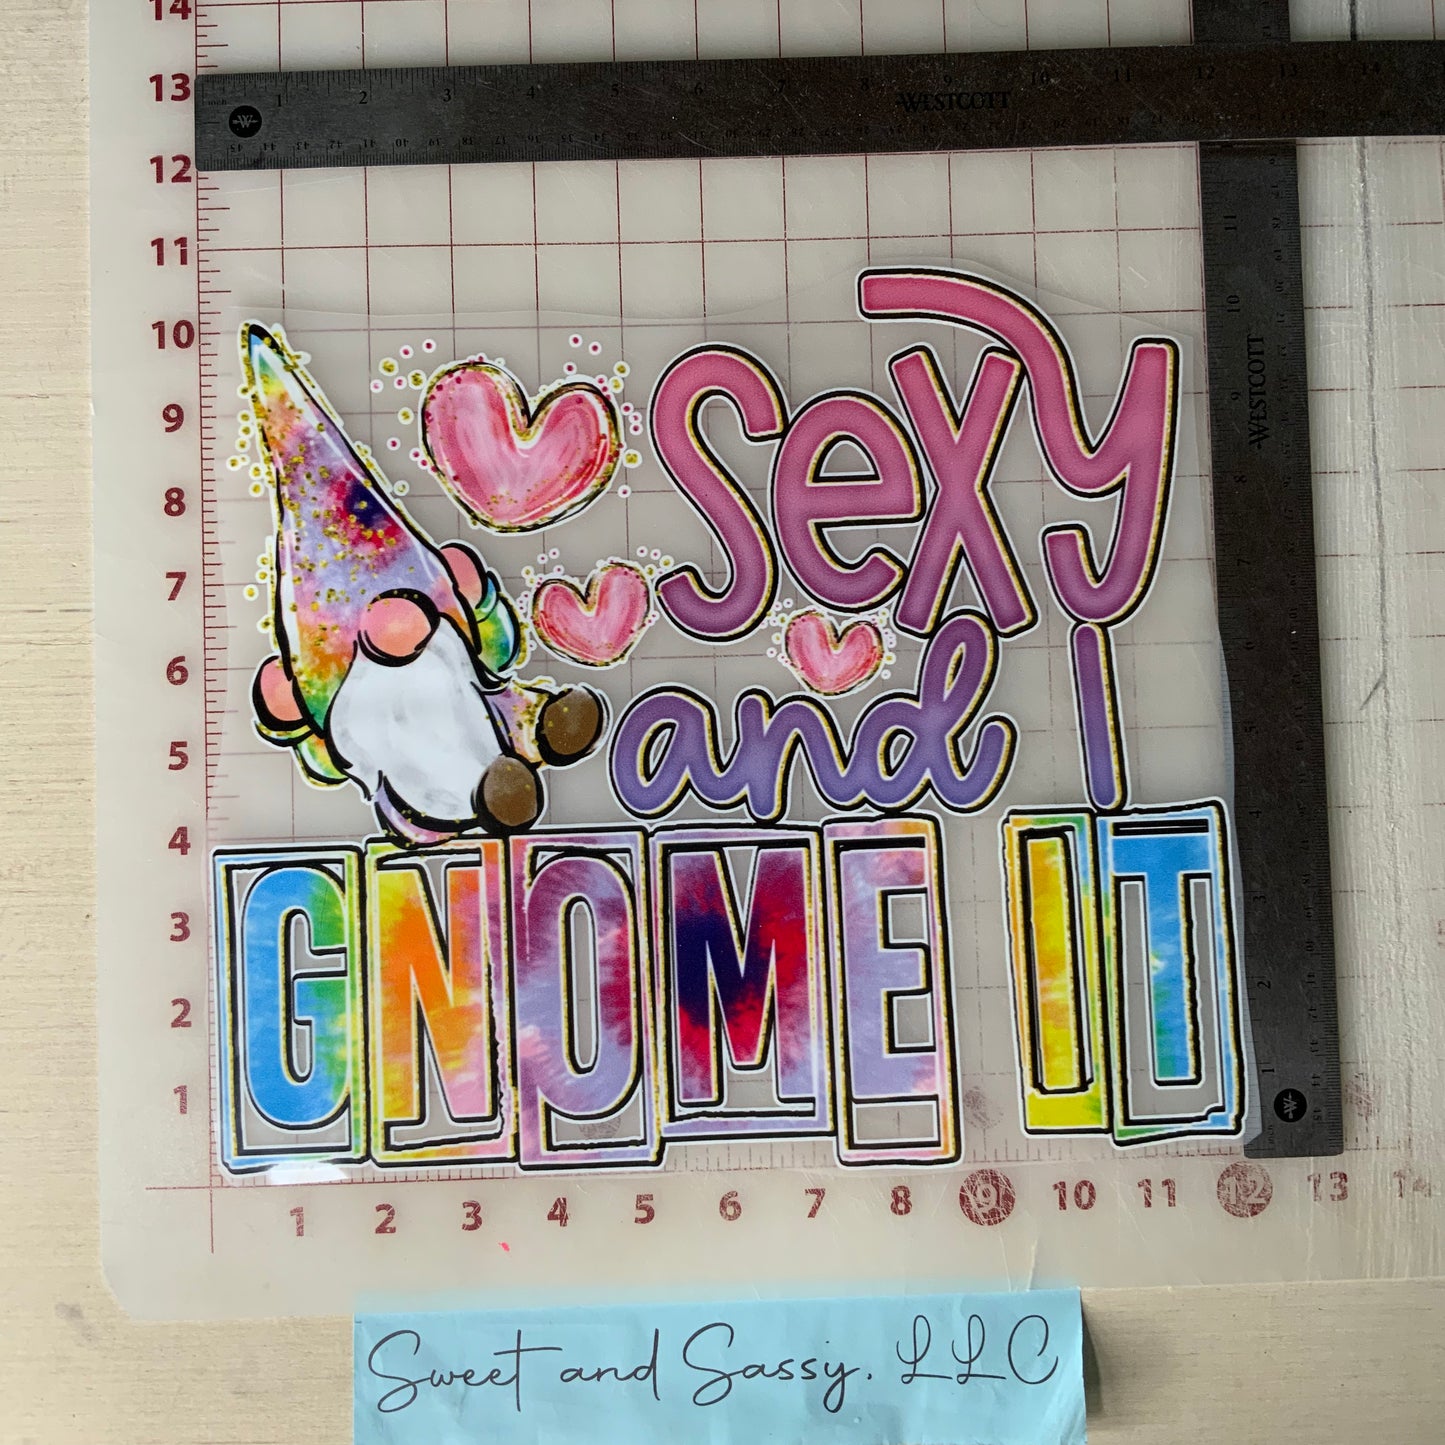 14
13
12
11
10
9
8
7
6
5
4
3
2
1
1 2 3 4 5 6 7 8 9 10 11 12 13 14
WESTCOTT
WESTCOTT
sexy
and I
GNOME IT
1 2 3 4 5 6 7 8 9 10 11 12 13 14
Sweet and Sassy, LLC